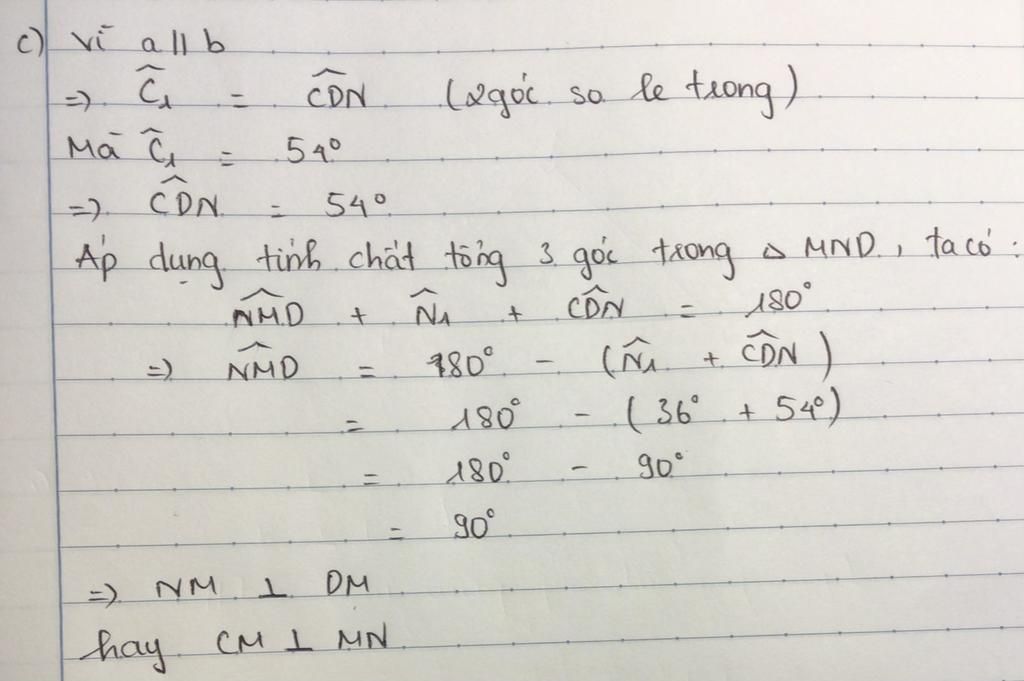 c) Vì a // b
=> Ĉ₁ = CD̂N (2 góc so le trong)
Mà Ĉ₁ = 54°
=> CD̂N = 54°
Áp dụng tính chất tổng 3 góc trong △ MND, ta có :
NM̂D + N̂₁ + CD̂N = 180°
=> NM̂D = 180° - (N̂₁ + CD̂N)
= 180° - (36° + 54°)
= 180° - 90°
= 90°
=> NM ⊥ DM
hay CM ⊥ MN